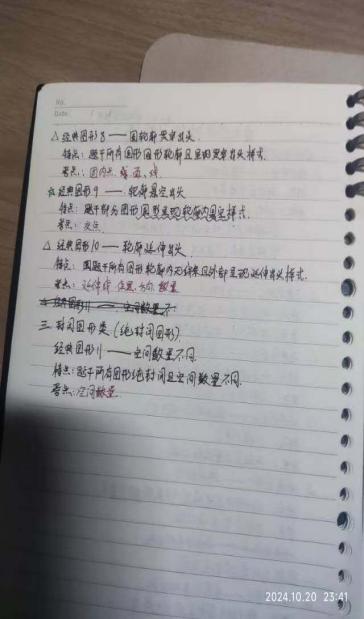 No.
Date.
△ 经典图形8——圆轮廓突穿出头
特点: 题干所有图形圆形轮廓且呈现突穿出头样式.
考点: 圆内点、线、面、线.
☆ 经典图形9——轮廓露空出头
特点: 题干部分图形圆形呈现轮廓内露空样式.
考点: 交点.
△ 经典图形10——轮廓延伸出头
特点: 图题干所有图形轮廓内无线条且外部呈现延伸出头样式.
考点: 延伸线 位置、方向、数量
三. 封闭图形类 (绝封闭图形).
经典图形11——空间数量不同.
特点: 题干所有图形绝封闭且空间数量不同.
考点: 空间数量.
2024.10.20 23:41